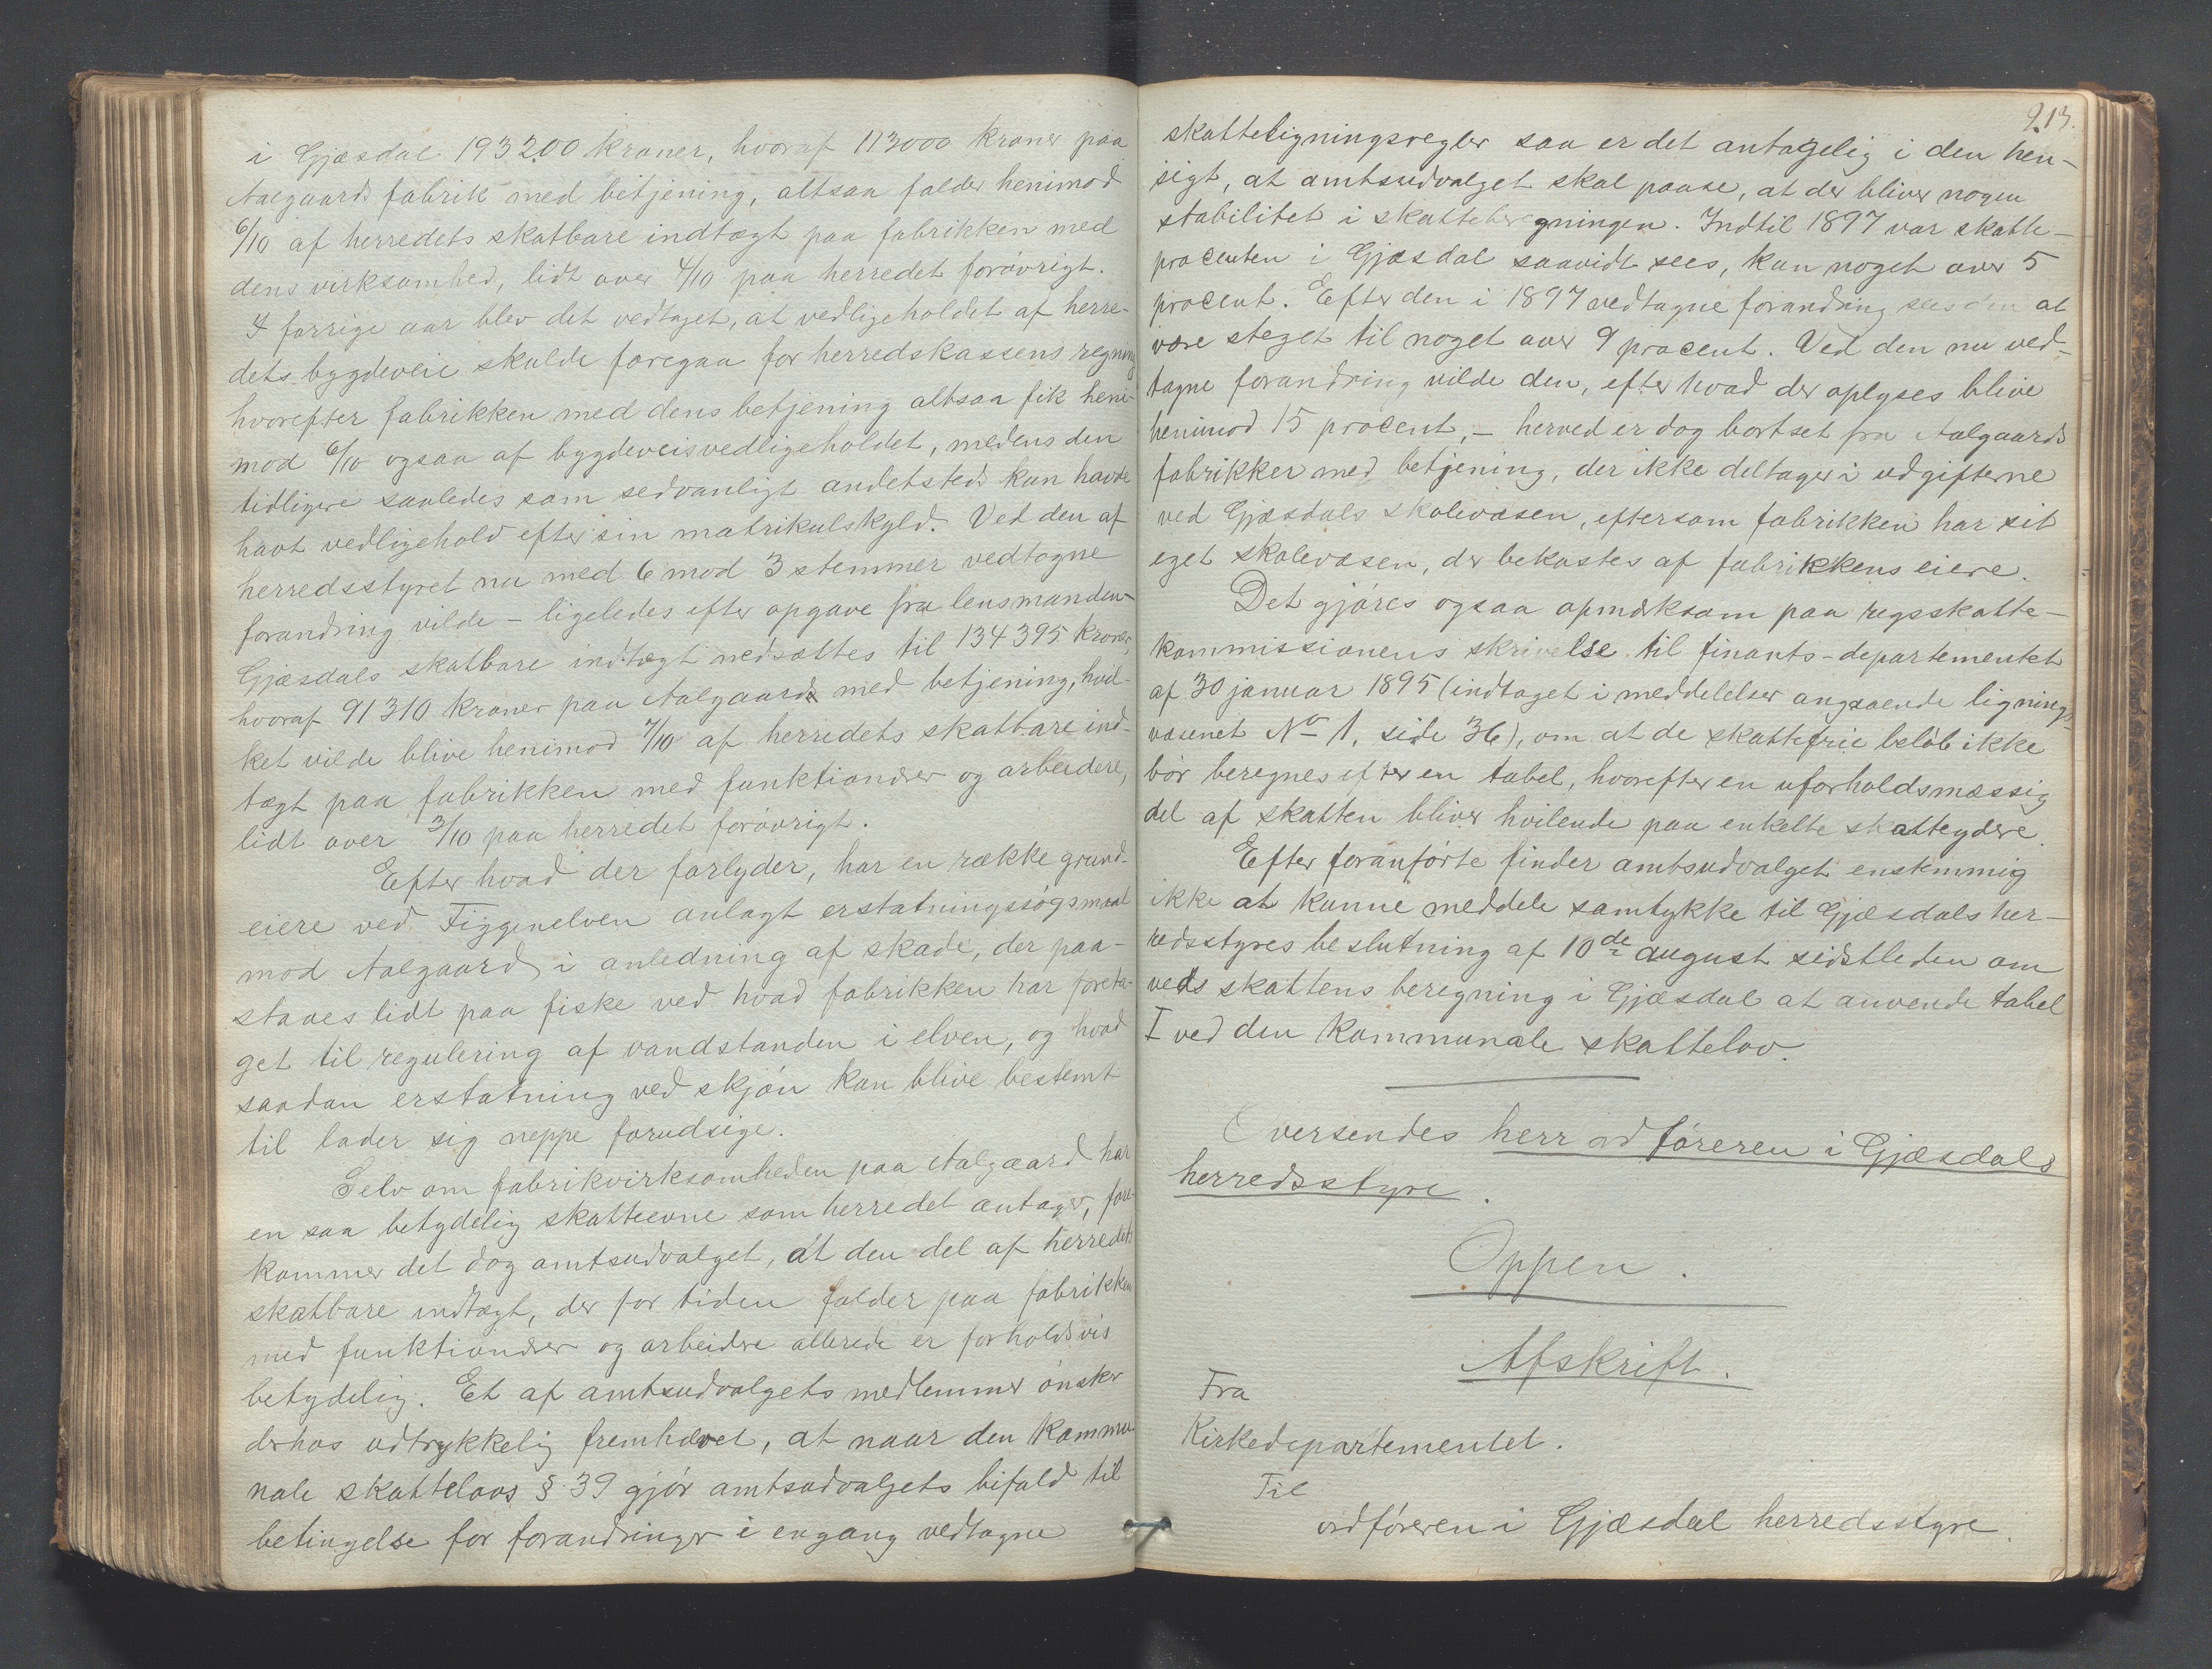 i Gjæsdal 193200 kroner, hvoraf 113000 kroner paa
Aalgaards fabrik med betjening, altsaa falder henimod
6/10 af herredets skatbare indtægt paa fabrikken med
dens virksomhed, lidt over 4/10 paa herredet forøvrigt.
I forrige aar blev det vedtaget, at vedligeholdet af herre-
dets bygdeveie skulde foregaa for herredskassens regning
hvorefter fabrikken med dens betjening altsaa fik heni-
mod 6/10 ogsaa af bygdeveisvedligeholdet, medens den
tidligere saaledes som sedvanligt andetsteds kun havde
havt vedligehold efter sin matrikulskyld. Ved den af
herredsstyret nu med 6 mod 3 stemmer vedtagne
forandring vilde – ligeledes efter opgave fra lensmanden-
Gjæsdals skatbare indtægt nedsættes til 134395 kroner,
hvoraf 91310 kroner paa Aalgaards med betjening, hvil-
ket vilde blive henimod 7/10 af herredets skatbare ind-
tægt paa fabrikken med funktionærer og arbeidere,
lidt over 3/10 paa herredet forøvrigt.
Efter hvad der forlyder, har en række grund-
eiere ved Figgenelven anlagt erstatningssøgsmaal
mod Aalgaard i anledning af skade, der paa-
staaes lidt paa fiske ved hvad fabrikken har foreta-
get til regulering af vandstanden i elven, og hvad
saadan erstatning ved skjøn kan blive bestemt
til lader sig neppe forudsige.
Selv om fabrikvirksomheden paa Aalgaard har
en saa betydelig skatteevne som herredet antager, fore-
kommer det dog amtsudvalget, at den del af herredets
skatbare indtægt, der for tiden falder paa fabrikken
med funktionærer og arbeidere allerede er forholdsvis
betydelig. Et af amtsudvalgets medlemmer ønsker
derhos udtrykkelig fremhævet, at naar den kommu-
nale skattelovs § 39 gjør amtsudvalgets bifald til
betingelse for forandringer i engang vedtagne
213.
skatteligningsregler saa er det antagelig i den hen-
sigt, at amtsudvalget skal paase, at der bliver nogen
stabilitet i skatteberegningen. Indtil 1897 var skatte-
procenten i Gjæsdal saavidt sees, kun noget over 5
procent. Efter den i 1897 vedtagne forandring sees den at
være steget til noget over 9 procent. Ved den nu ved-
tagne forandring vilde den, efter hvad der oplyses blive
henimod 15 procent, – herved er dog bortset fra Aalgaards
fabrikker med betjening, der ikke deltager i udgifterne
ved Gjæsdals skolevæsen, eftersom fabrikken har sit
eget skolevæsen, der bekostes af fabrikkens eiere.
Det gjøres ogsaa opmærksom paa regsskatte-
kommissionens skrivelse til finants-departementet
af 30 januar 1895 (indtaget i meddelelser angaaende lignings-
væsenet No 1, side 36), om at de skattefrie beløb ikke
bør beregnes efter en tabel, hvorefter en uforholdsmæssig
del af skatten bliver hvilende paa enkelte skatteydere.
Efter foranførte finder amtsudvalget enstemmig
ikke at kunne meddele samtykke til Gjæsdals her-
redsstyres beslutning af 10de august sidstleden om
ved skattens beregning i Gjæsdal at anvende tabel
I ved den kommunale skattelov.
Oversendes herr ordføreren i Gjæsdals
herredsstyre.
Oppen.
Afskrift.
Fra
Kirkedepartementet.
Til
ordføreren i Gjæsdal herredsstyre.